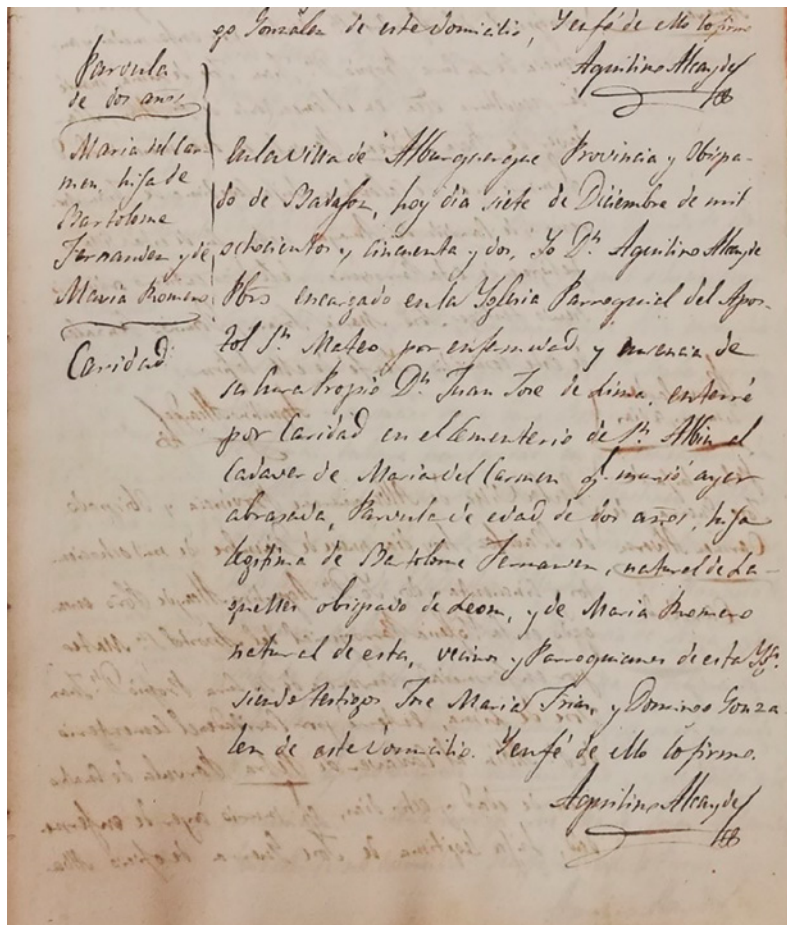 go Gonzalez de este Domicilio, Yenfé de ello lo firmo
Aquilino Alcayde
Parvula
de dos años
Maria del Car-
men, hija de
Bartolome
Fernandez y de
Maria Romero
Caridad
En la Villa de Alburquerque Provincia y Obispa-
do de Badajoz, hoy dia siete de Diciembre de mil
ochocientos y cincuenta y dos, Yo Dn. Aquilino Alcayde
Pbro encargado en la Yglesia Parroquial del Apos-
tol Sn. Mateo por enfermedad y ausencia de
su Cura Propio Dn. Juan Jose de Lima, enterré
por Caridad en el Cementerio de Sn. Albin el
Cadaver de Maria del Carmen q. murió ayer
abrasada, Parvula de edad de dos años, hija
legitima de Bartolome Fernandez, natural de La-
obispado de Leon, y de Maria Romero
natural de esta, vecinos y Parroquianos de esta Ygª.
siendo testigos Jose Maria Frias, y Domingo Gonza
lez de este Domicilio. Yenfé de ello lo firmo.
Aquilino Alcayde